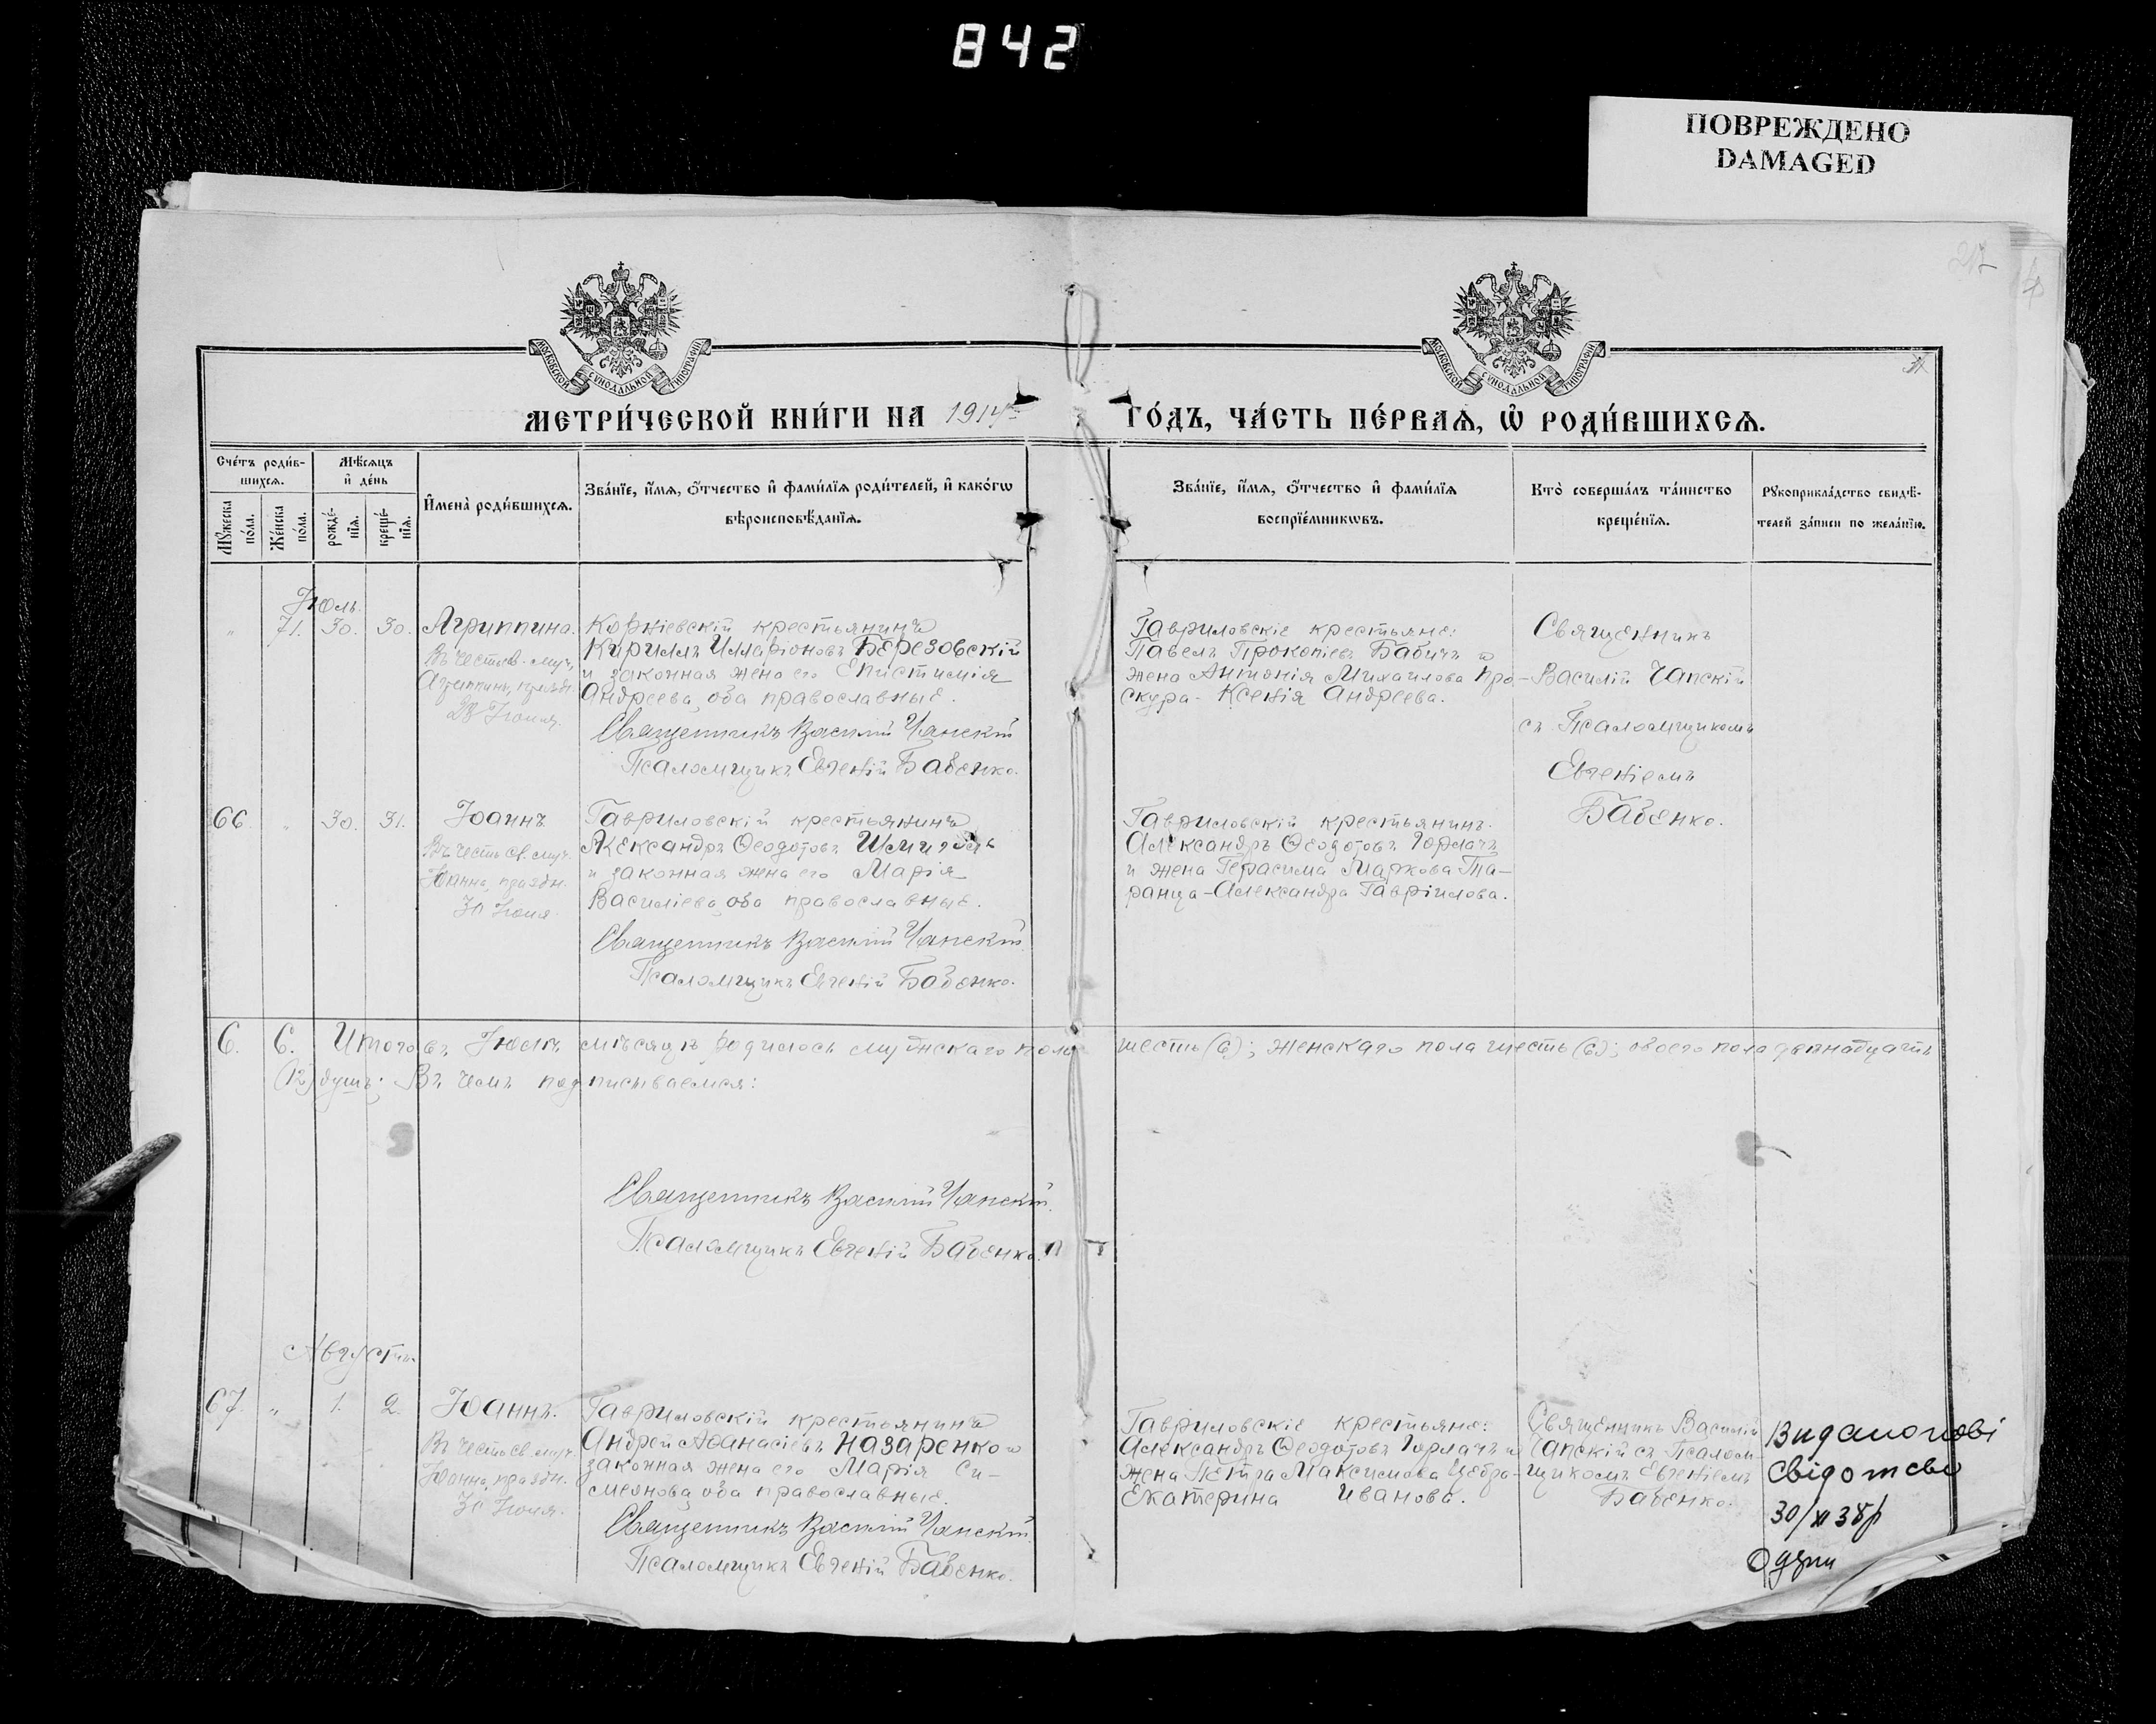 842
ПОВРЕЖДЕНО
DAMAGED
217
МОСКОВСКОЙ СУНОДАЛЬНОЙ ТИПОГРАФІИ
МОСКОВСКОЙ СУНОДАЛЬНОЙ ТИПОГРАФІИ
МЕТРИ́ЧЕСКОЙ КНИ́ГИ НА 1914
ГО́ДЪ, ЧА́СТЬ ПЕ́РВАЯ, Ѡ҆ РОДИ́ВШИХСЯ.
Сче́тъ роди́в-
шихся.
Мѣ́сяцъ
и҆ де́нь
Мꙋ́жеска по́ла.
Же́нска по́ла.
рожде́-
нїя.
креще́-
нїя.
И҆мена̀ роди́вшихся.
Зва́нїе, и҆́мя, ѻ҆́тчество и҆ фами́лїя роди́телей, и҆ како́гѡ
вѣроисповѣ́данїя.
Зва́нїе, и҆́мя, ѻ҆́тчество и҆ фами́лїя
воспрїе́мникѡвъ.
Кто̀ соверша́лъ та́инство
креще́нїя.
Рꙋкоприкла́дство свидѣ́-
телей за́писи по жела́нїю.
Іюль.
" 71. 30. 30. Агриппина.
Въ честь св. муч.
Агриппины, праздн.
23 Іюня.
Корніевскій крестьянинъ
Кириллъ Илларіоновъ Березовскій
и законная жена его Епистимія
Андреева, оба православные.
Священникъ Василій Чапскій
Псаломщикъ Евгеній Бабенко.
Гавриловскіе крестьяне:
Павелъ Прокопіевъ Бабичъ и
жена Антонія Михаилова Про-
скура - Ксенія Андреева.
Священникъ
Василій Чапскій
съ Псаломщикомъ
Евгеніемъ
Бабенко.
66. " 30. 31. Іоаннъ
Въ честь св. муч.
Іоанна, праздн.
30 Іюня.
Гавриловскій крестьянинъ
Александръ Ѳеодотовъ
и законная жена его Марія
Василіева, оба православные.
Священникъ Василій Чапскій.
Псаломщикъ Евгеній Бабенко.
Гавриловскій крестьянинъ
Александръ Ѳеодотовъ Горлачъ
и жена Герасима Маркова Та-
ранца - Александра Гавріилова.
6. 6. Итого въ Іюлѣ мѣсяцѣ родилось мужскаго пола шесть (6); женскаго пола шесть (6); обоего пола двѣнадцать
(12) душъ. Въ чемъ подписываемся:
Священникъ Василій Чапскій.
Псаломщикъ Евгеній Бабенко.
Августъ.
67. " 1. 2. Іоаннъ.
Въ честь св. муч.
Іоанна, праздн.
30 Іюня.
Гавриловскій крестьянинъ
Андрей Аѳанасіевъ Назаренко и
законная жена его Марія Си-
меонова, оба православные.
Священникъ Василій Чапскій.
Псаломщикъ Евгеній Бабенко.
Гавриловскіе крестьяне:
Александръ Ѳеодотовъ Горлачъ и
жена Петра Максимова Цебра-
Екатерина Иванова.
Священникъ Василій
Чапскій съ Псалом-
щикомъ Евгеніемъ
Бабенко.
свідотство
30/XI 38р